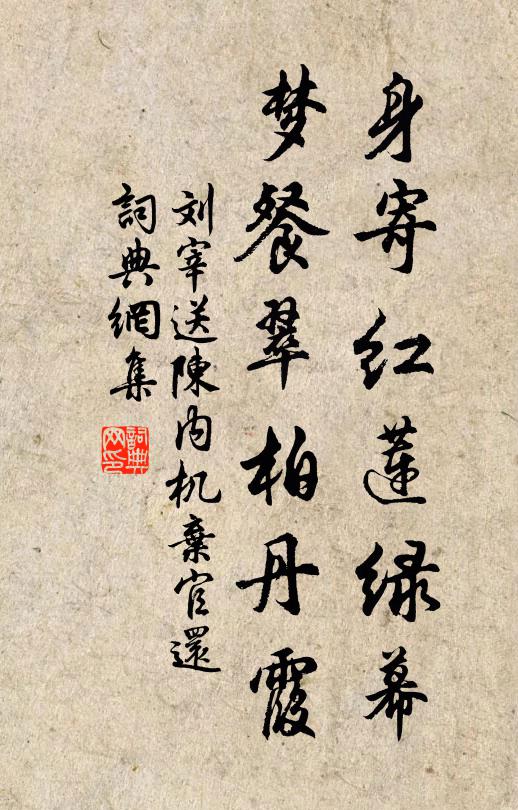 身寄红莲绿幕
梦餐翠柏丹霞
刘宰送陳内机棄官還
詞典網集
詞典网印